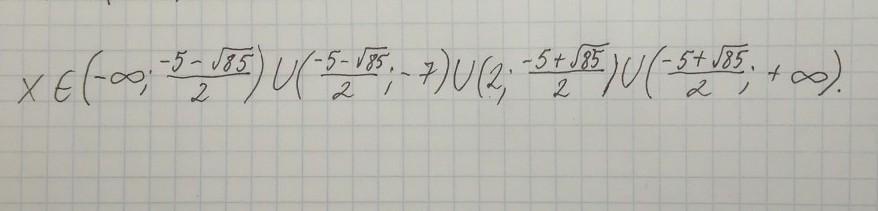 x ∈ (-∞; \frac{-5-\sqrt{85}}{2}) ∪ (\frac{-5-\sqrt{85}}{2}; -7) ∪ (2; \frac{-5+\sqrt{85}}{2}) ∪ (\frac{-5+\sqrt{85}}{2}; +∞).